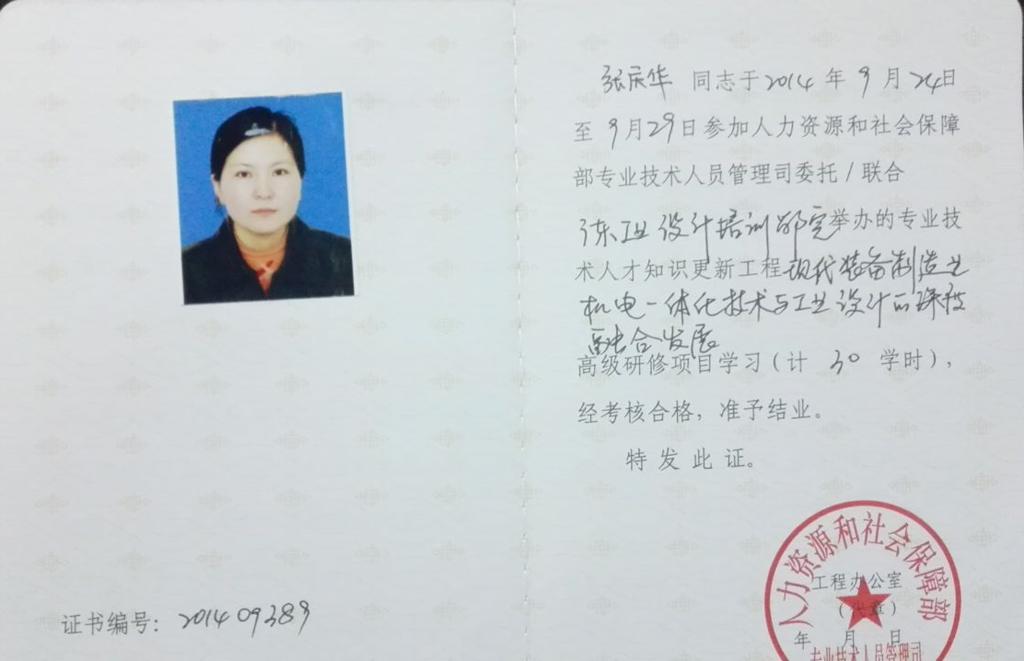 张庆华 同志于2014 年 9 月 24日
至 9月29日参加人力资源和社会保障
部专业技术人员管理司委托/联合
工业设计培训学院举办的专业技
术人才知识更新工程现代装备制造业
机电一体化技术与工业设计的深度
融合发展
高级研修项目学习(计 30 学时),
经考核合格,准予结业。
特发此证。
人力资源和社会保障部
工程办公室
(盖章)
年 月 日
专业技术人员管理司
证书编号: 201409389